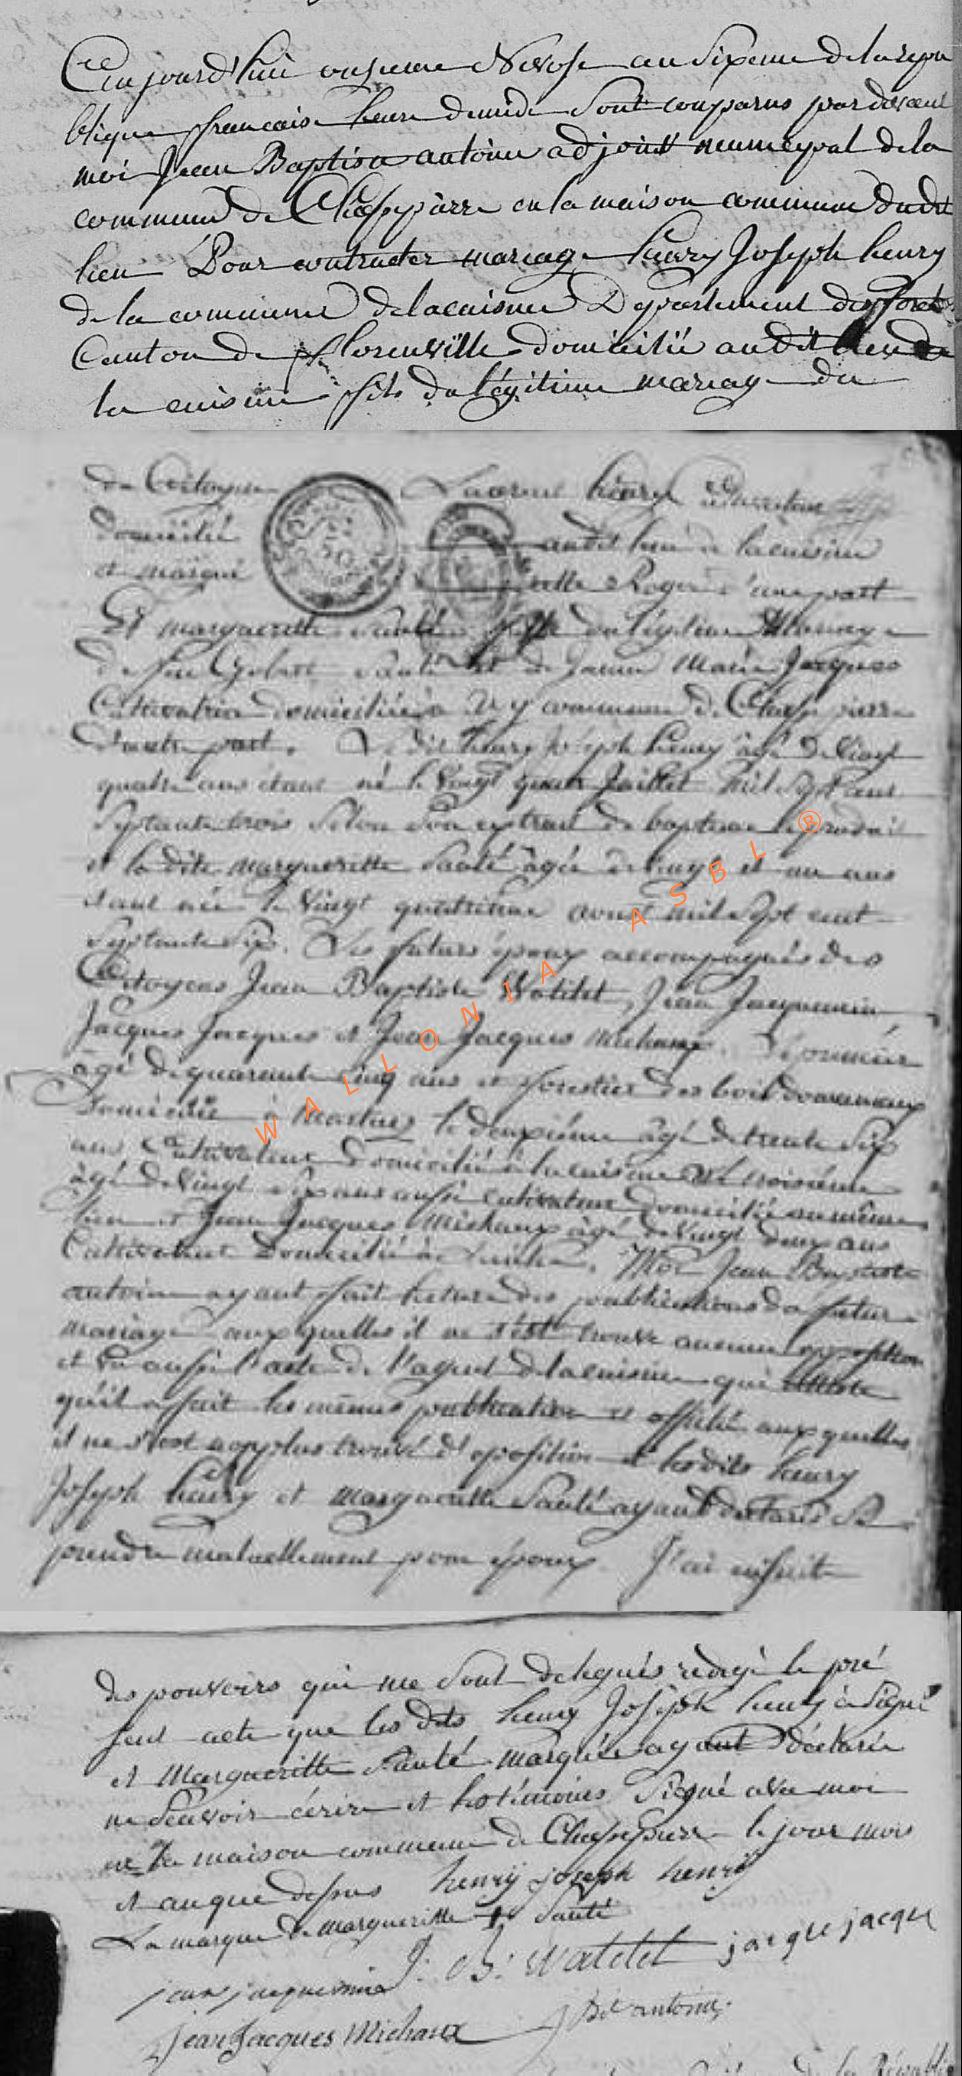 Cejourd'hui onzieme Nivose an Sixeme de la repu
blique francaise heure de midi Sont comparus par devant
moi Jean Baptiste antoine adjoint municypal de la
commune de Chassepierre en la maison commune dudit
lieu Pour contracter mariage henry Joseph henry
de la commune de lacuisine Departement des foret
Canton de florenville domicilié audit lieu de
la cuisine fils du légitime mariage du
du Citoyen Laurent henry
domicilié audit lieu de lacuisine
et marguerite Roger d'une part
Et marguerite Santé fille du légitime Mariage
de feu Gobert Santé et de Jeanne Marie Jacques
Cultivatrice domiciliée à commune de Chassepierre
d'autre part. Le dit henry Joseph henry âgé de Vingt
quatre ans étant né le Vingt Juillet mil Sept cent
Septante trois Selon Son extrait de bapteme
et la dite marguerite Santé âgée de vingt et un ans
étant née le Vingt quatrieme aoust mil Sept cent
Septante Six. Les futurs époux accompagnés des
Citoyens Jean Baptiste Watelet, Jean Jacquemin
Jacques Jacques et Jean Jacques Michaux. Le premier
âgé de quarante cinq ans et forestier des bois domaniaux
Domicilié à le deuxième âgé de trente Six
ans Cultivateur Domicilié à lacuisine Le troisième
âgé de Vingt Six ans aussi cultivateur domicilié au même
lieu et Jean Jacques Michaux âgé de Vingt deux ans
Cultivateur Domicilié à Moi Jean Baptiste
antoine ayant fait lecture des publications du futur
mariage auxquelles il ne s'est trouvé aucune opposition
et vu aussi l'acte de l'agent de lacuisine qui atteste
qu'il a fait les mêmes publication et affiche auxquelles
il ne s'est non plus trouvé d'oposition et lesdits henry
Joseph henry et marguerite Santé ayant déclarés Se
prendre mutuellement pour époux. J'ai ensuite
des pouvoirs qui me Sont delegués redigé le pré
sent acte que les dits henry Joseph henry à Signé
et Marguerite Santé marquée ayant déclarée
ne Scavoir écrire et les témoins Signé avec moi
en la maison commune de Chassepierre le jour mois
et an que dessus henrÿ joseph henrÿ
La marque de marguerite + Santé
J: B: Watelet jacque jacque
jean jacquemin
jean Jacques Michaux JBte antoine
de la Républi
WALLONIA ASBL ®